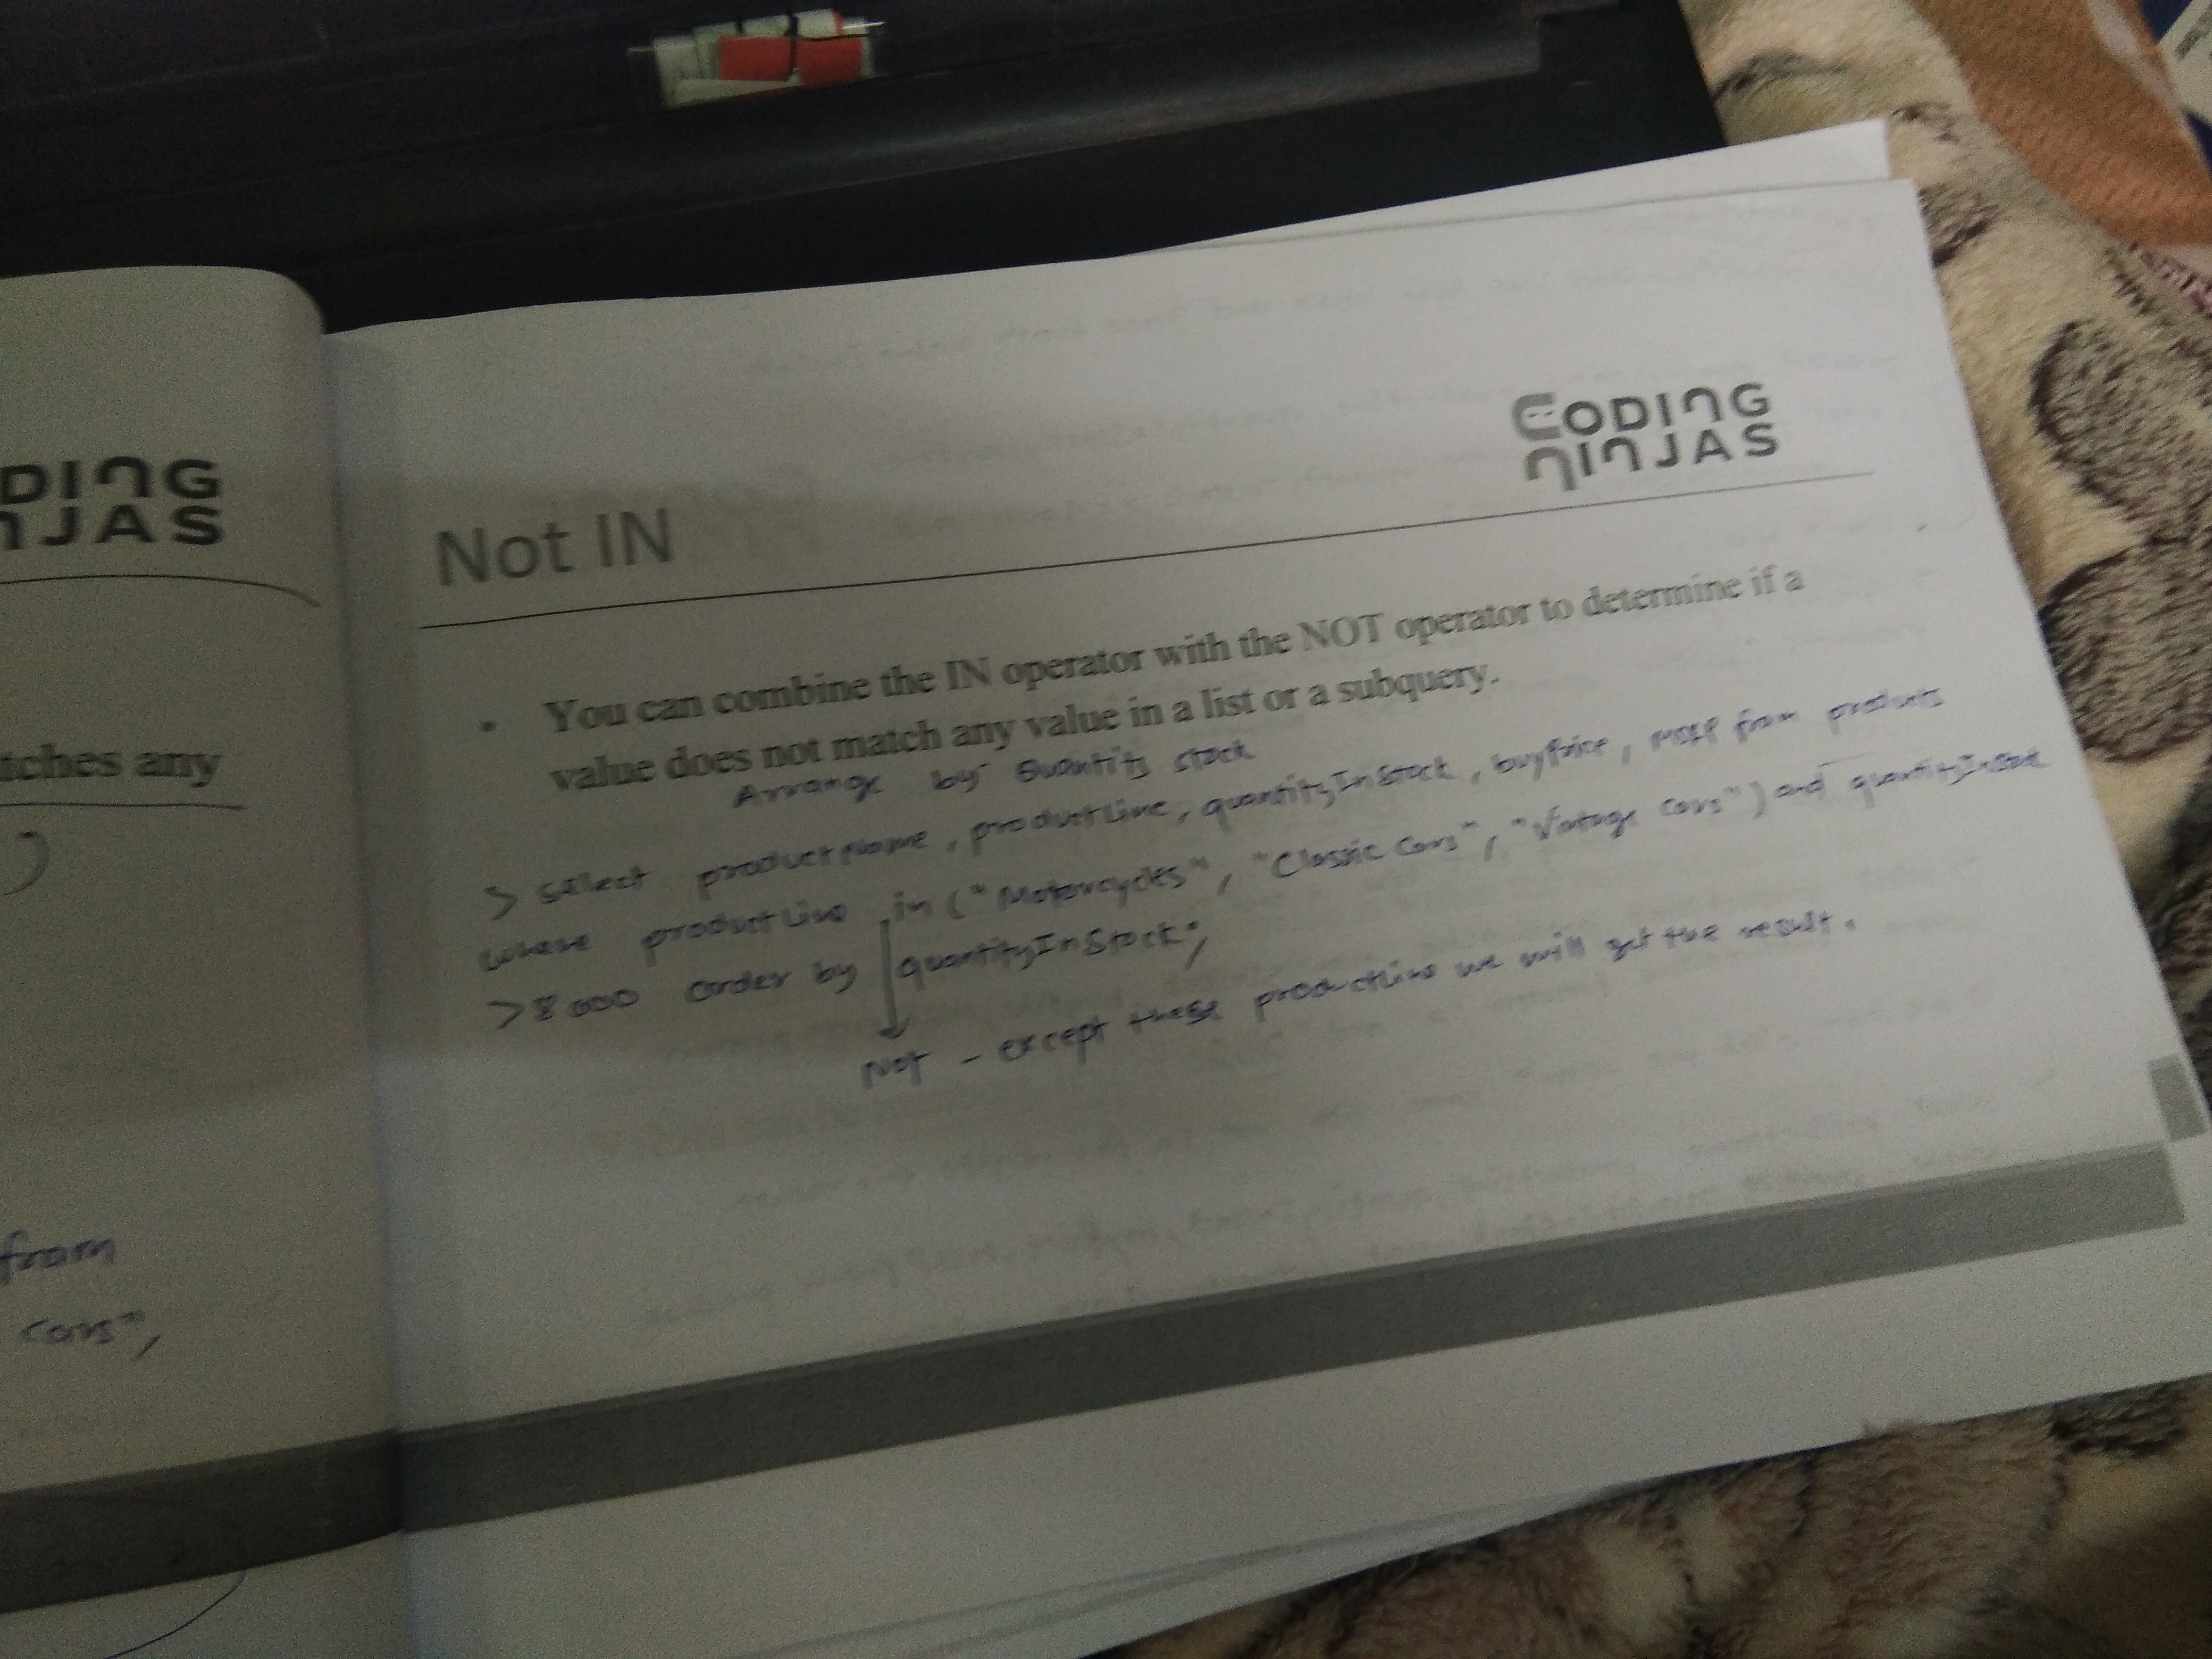 DING
NJAS
tches any
from
cars",
CODING
NINJAS
Not IN
• You can combine the IN operator with the NOT operator to determine if a
value does not match any value in a list or a subquery.
Arrange by Quantity stock
> select productName, productLine, quantityInStock, buyPrice, MSRP from products
where productLine in ("Motorcycles", "Classic Cars", "Vintage Cars") and quantityInStock
> 8000 order by quantityInStock;
Not - except these productLine we will get the result.